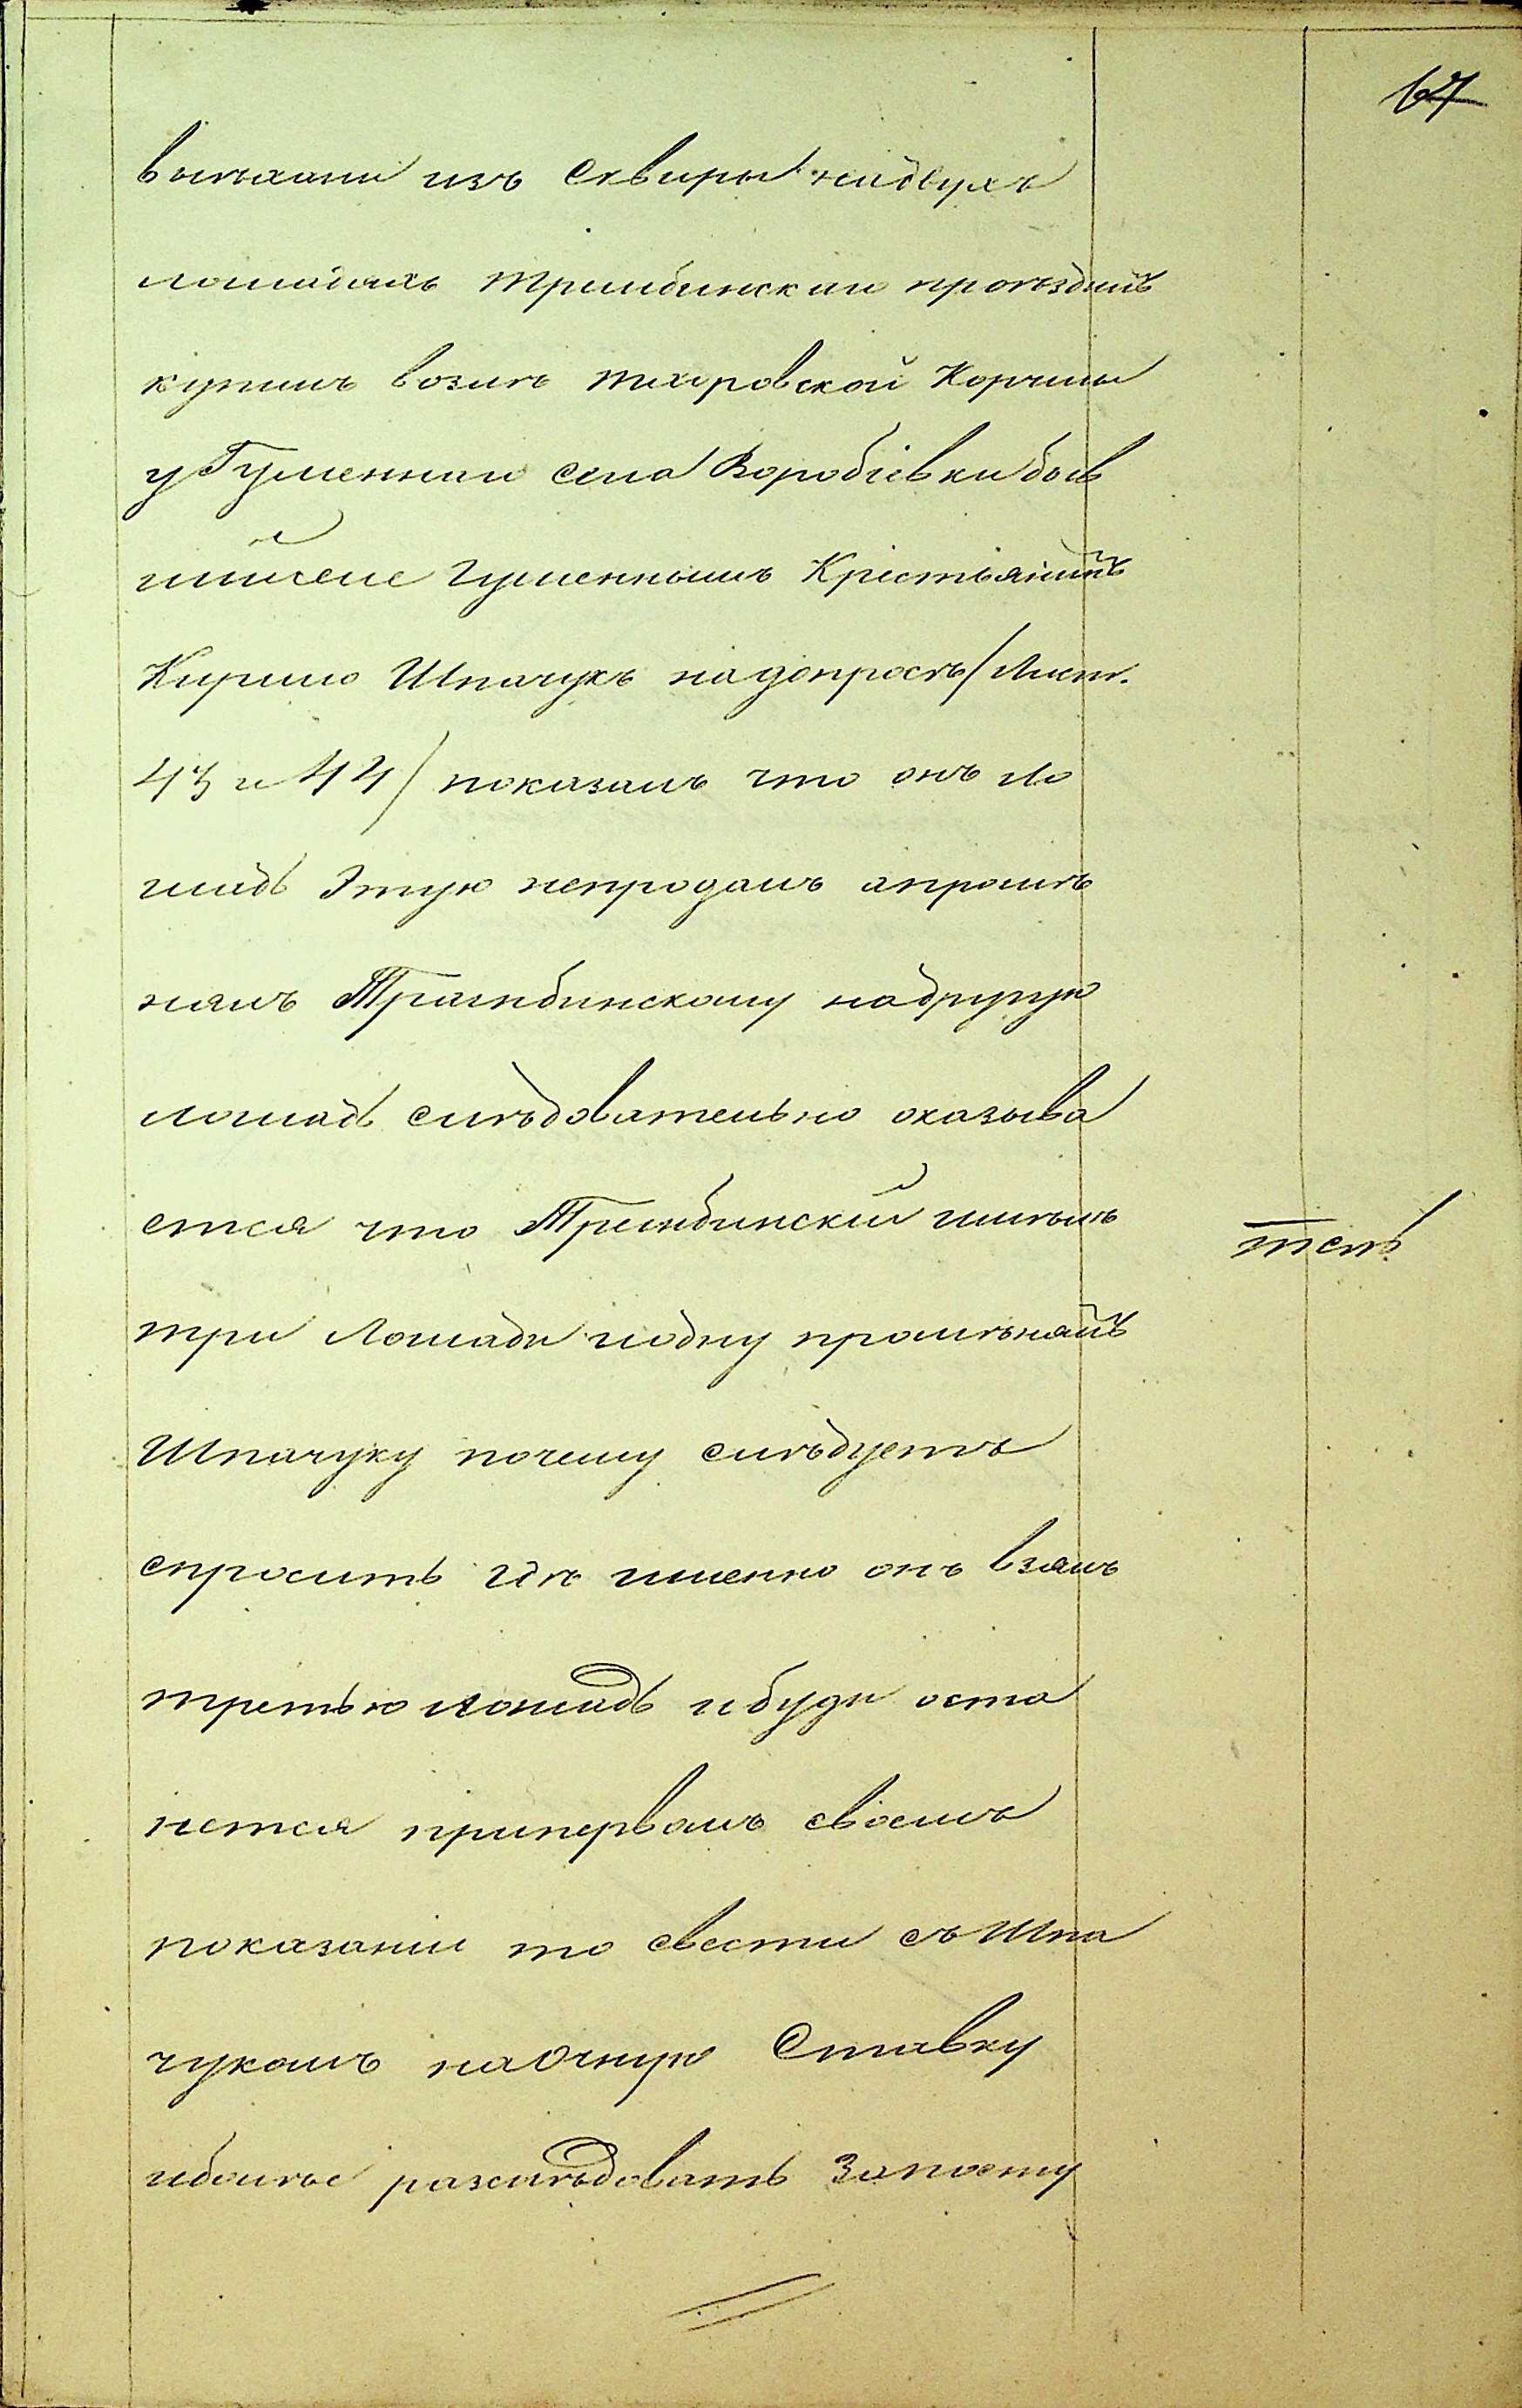 67
выѣхали изъ Сквиры надвухъ
лошадяхъ Трембинскаю проѣздимъ
купилъ возлѣ Тхоровской Корчмы
у Гуменнаю села Воробіевки быв
шійже гуменнымъ Крестьянинъ
Кирило Шпачукъ на допросѣ /Лист.
43 и 44/ показалъ что онъ ло
шадь Этую непродалъ апромѣ
нялъ Трембинскому надругую
лошадь слѣдовательно оказыва
ется что Трембинскій имѣлъ
три Лошади иодну промѣнялъ
Шпачуку почему слѣдуетъ
спросить гдѣ именно онъ взялъ
третью лошадь ибуди оста
нется припервомъ своемъ
показаніи то свести съ Шпа
чукомъ наОчную Ставку
иболѣе разслѣдовать Запоему